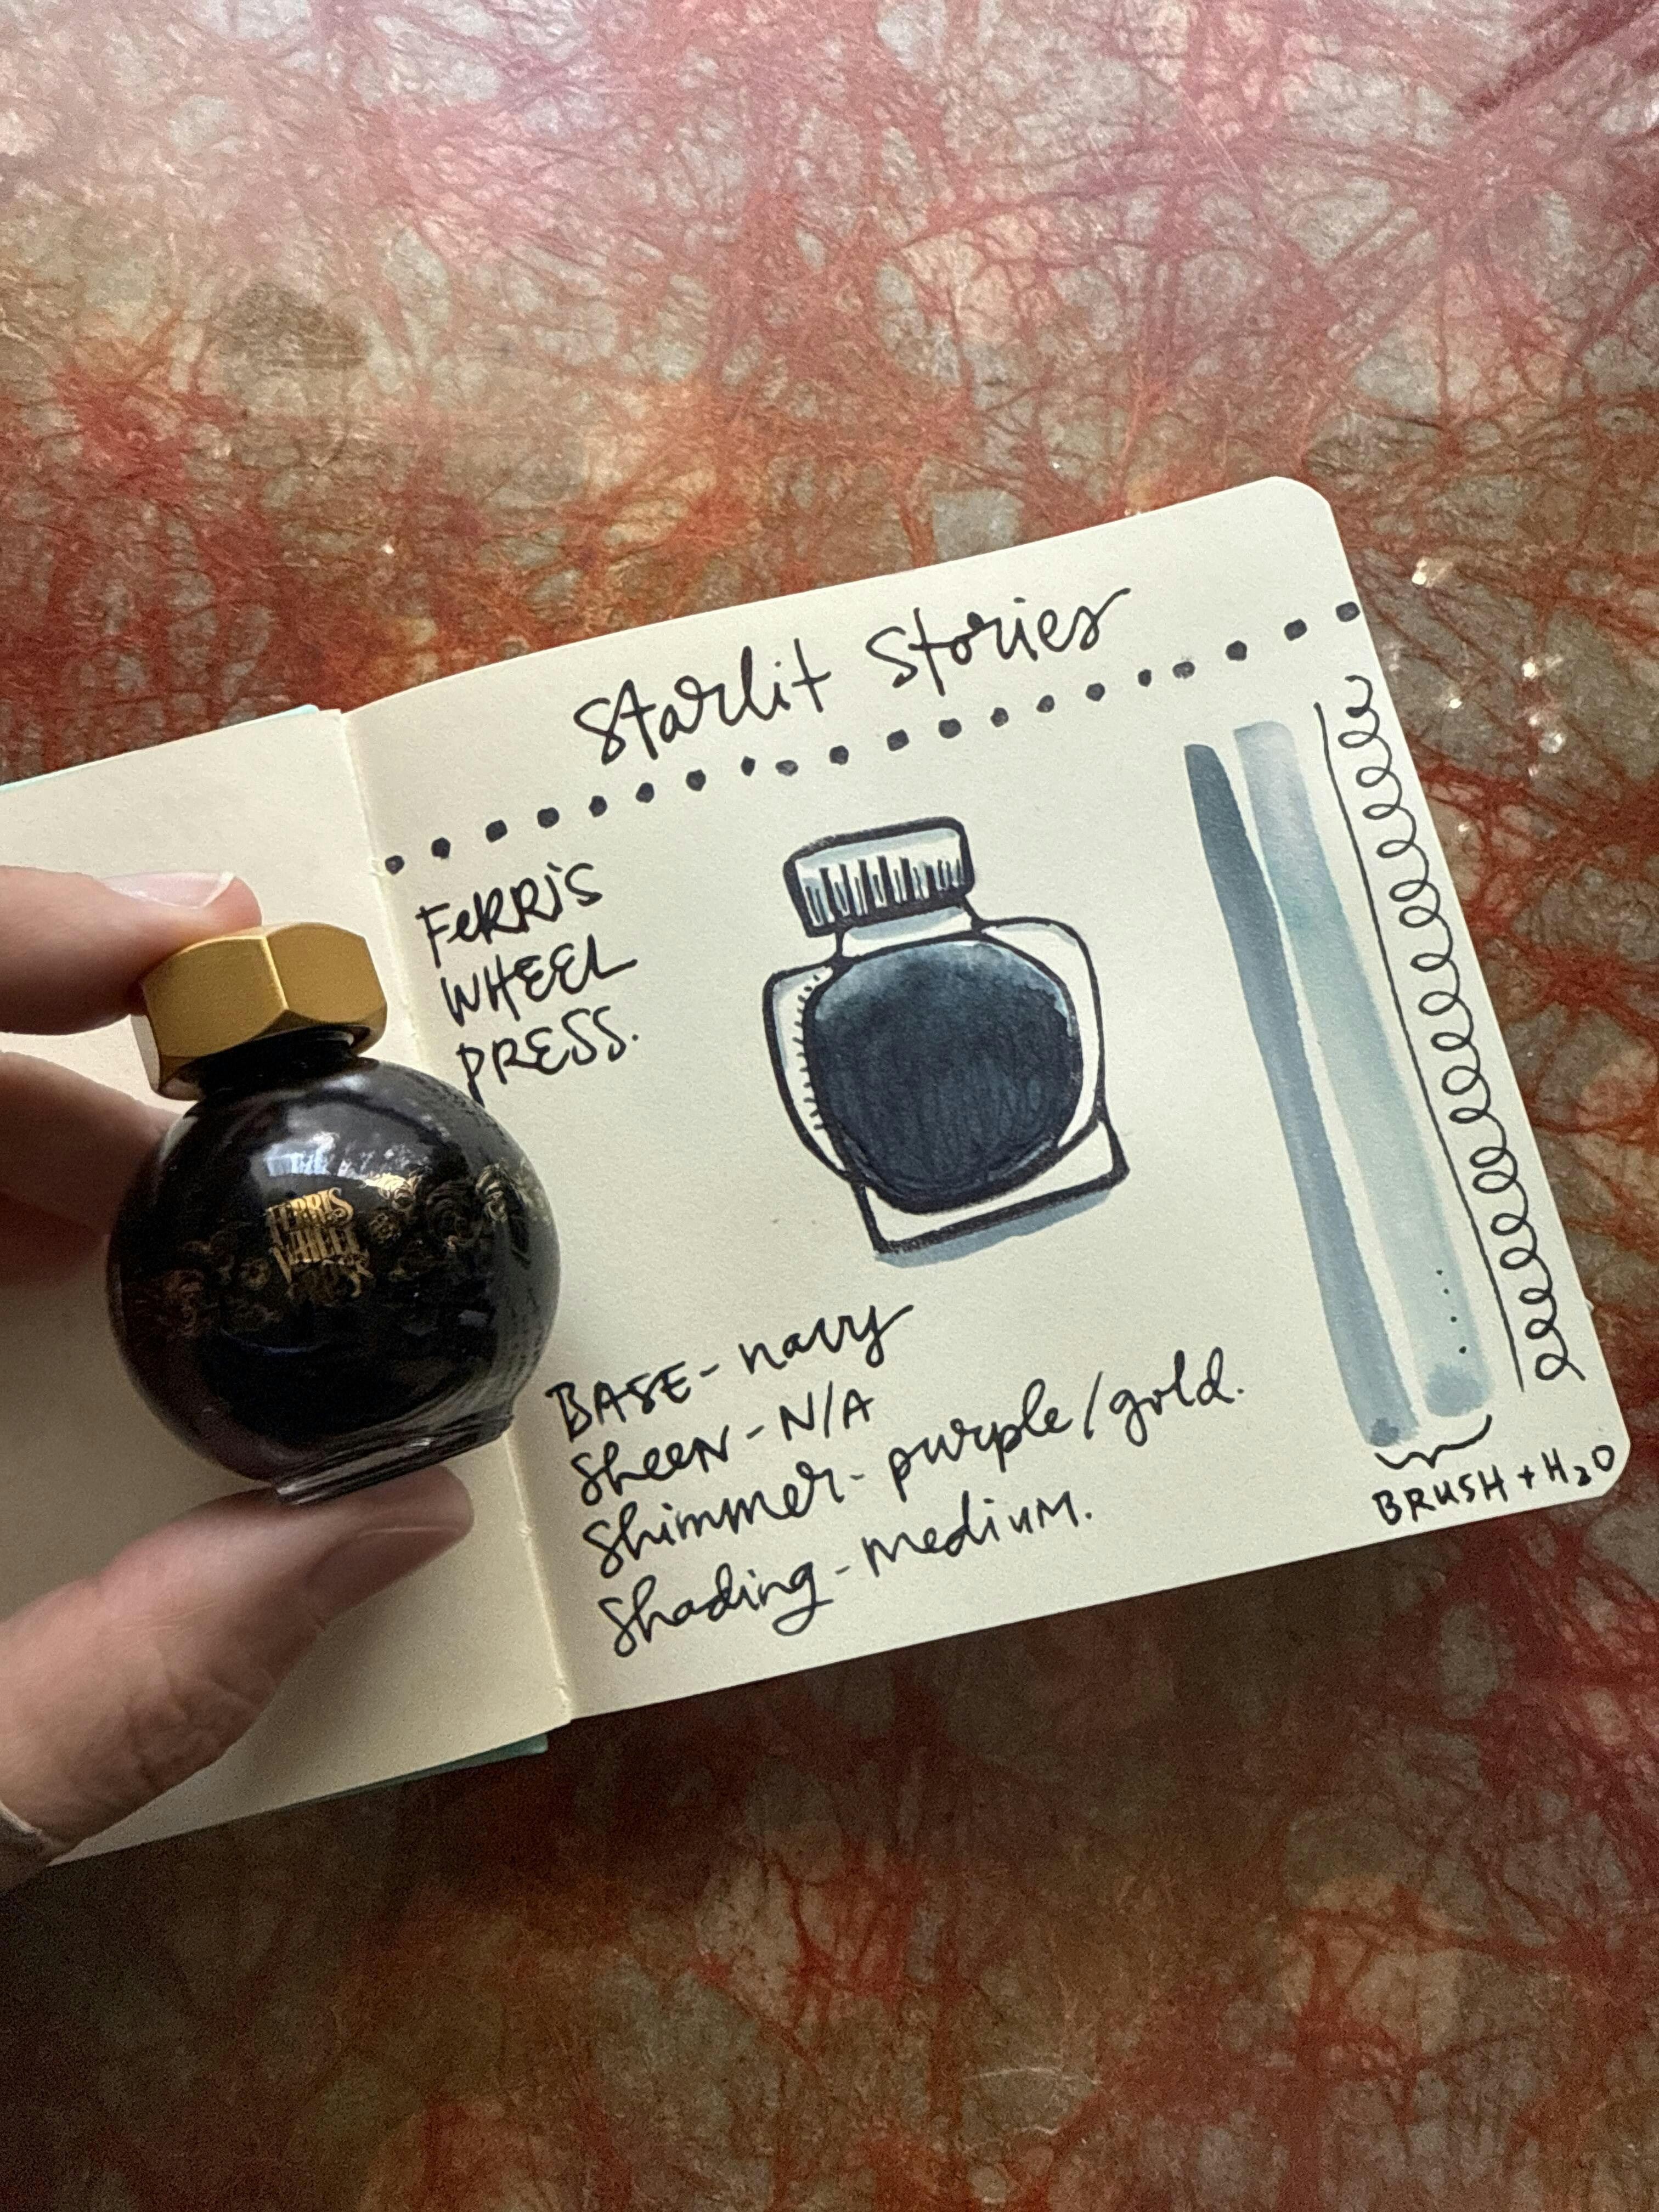 Starlit Stories
FERRIS
WHEEL
PRESS.
FERRIS
WHEEL
PRESS
BASE - navy
Sheen - N/A
Shimmer - purple/gold.
Shading - medium.
BRUSH + H2O